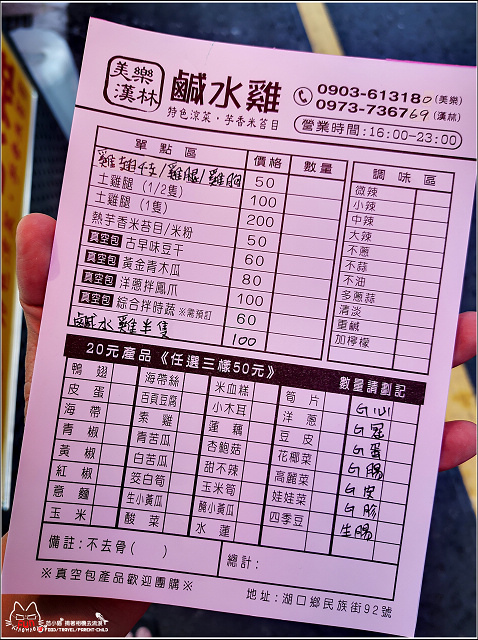 美樂
漢林
鹹水雞
特色涼菜・芋香米苔目
0903-613180(美樂)
0973-736769(漢林)
營業時間:16:00-23:00
單點區 價格 數量 調味區
雞翅任/雞腿/雞胸 50
土雞腿(1/2隻) 100
土雞腿(1隻) 200
熱芋香米苔目/米粉 50
真空包 古早味豆干 60
真空包 黃金青木瓜 80
真空包 洋蔥拌鳳爪 100
真空包 綜合拌時蔬※需預訂 60
鹹水雞半隻 100
微辣
小辣
中辣
大辣
不蔥
不蒜
不油
多蔥蒜
清淡
重鹹
加檸檬
20元產品《任選三樣50元》 數量請劃記
鴨翅 海帶絲 米血糕 筍片 G心
皮蛋 百頁豆腐 小木耳 洋蔥 G冠
海帶 素雞 蓮藕 豆皮 G蛋
青椒 青苦瓜 杏鮑菇 花椰菜 G腸
黃椒 白苦瓜 甜不辣 高麗菜 G皮
紅椒 筊白筍 玉米筍 娃娃菜 G胗
意麵 生小黃瓜 醃小黃瓜 四季豆 生腸
玉米 酸菜 水蓮
備註:不去骨( ) 總計:
※真空包產品歡迎團購※ 地址:湖口鄉民族街92號
FOOD/TRAVEL/PARENT-CHILD